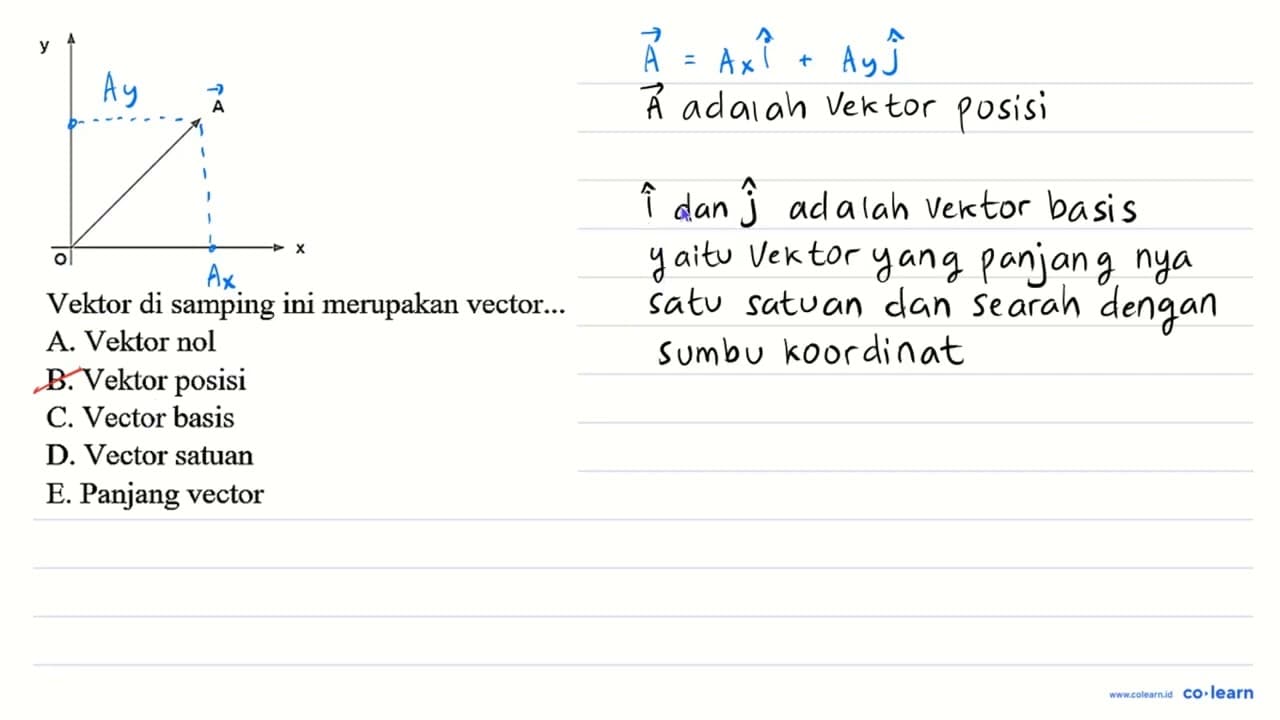 y
Ay
A
O
x
Ax
Vektor di samping ini merupakan vector...
A. Vektor nol
B. Vektor posisi
C. Vector basis
D. Vector satuan
E. Panjang vector
A⃗ = Ax î + Ay ĵ
A⃗ adalah Vektor posisi
î dan ĵ adalah vektor basis
yaitu Vektor yang panjang nya
satu satuan dan searah dengan
sumbu koordinat
www.colearn.id co·learn